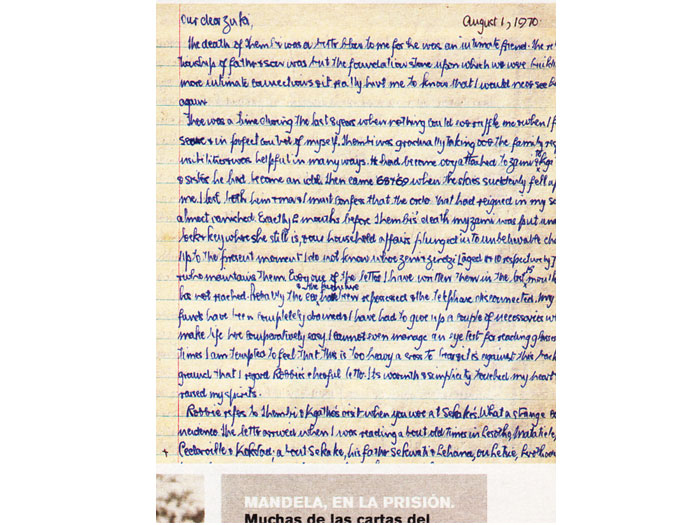 Our dear Zufa, August 1, 1970
The death of Thembi was a bitter blow to me for he was an intimate friend. The re
tionship of father & son was but the foundation stone upon which we were build
more intimate connections & it really hurt me to know that I would never see
again
There was a time during the last 8 years when nothing could ruffle me & when I f
secure & in perfect control of myself. Thembi was gradually taking over the family re
sibilities & was helpful in many ways. He had become very attached to Zami & Kgatho
& sisters he had become an idol. Then came 68 & 69 when the skies suddenly fell up
me. I lost both him & ma & I must confess that the order that had reigned in my so
almost vanished. Exactly 2 months before Thembi's death my Zami was put und
lock & key where she still is, & our household affairs plunged into unbelievable cha
Up to the present moment I do not know where Zeni & Zindzi (aged 11 & 10 respectively)
& who maintains them. Every one of the letters I have written them in the last months
has not reached. Probably the car & the furniture have been repossessed & the telephone disconnected. My
funds have been completely drained & I have had to give up a couple of necessaries w
make life here comparatively easy. I cannot even manage an eye test for reading glasses
times I am tempted to feel that this is too heavy a cross to bear. It is against this back
ground that I regard Robbie's cheerful letter. Its warmth & simplicity touched my heart
raised my spirits.
Robbie refers to Thembi & Kgatho's visit when you were at Sekake's. What a strange co
incidence. The letter arrived when I was reading about old times in Lesotho, Matatiele,
Cedarville & Kokstad; about Sekake, his father Sekwati & Lehana,
MANDELA, EN LA PRISIÓN.
Muchas de las cartas del